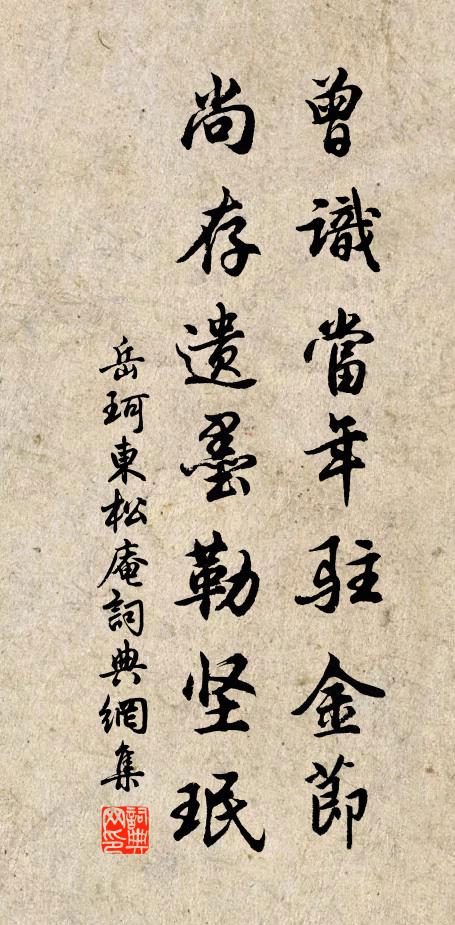 曾識當年駐金節
尚存遺墨勒坚珉
岳珂東松庵詞典網集
詞典网印